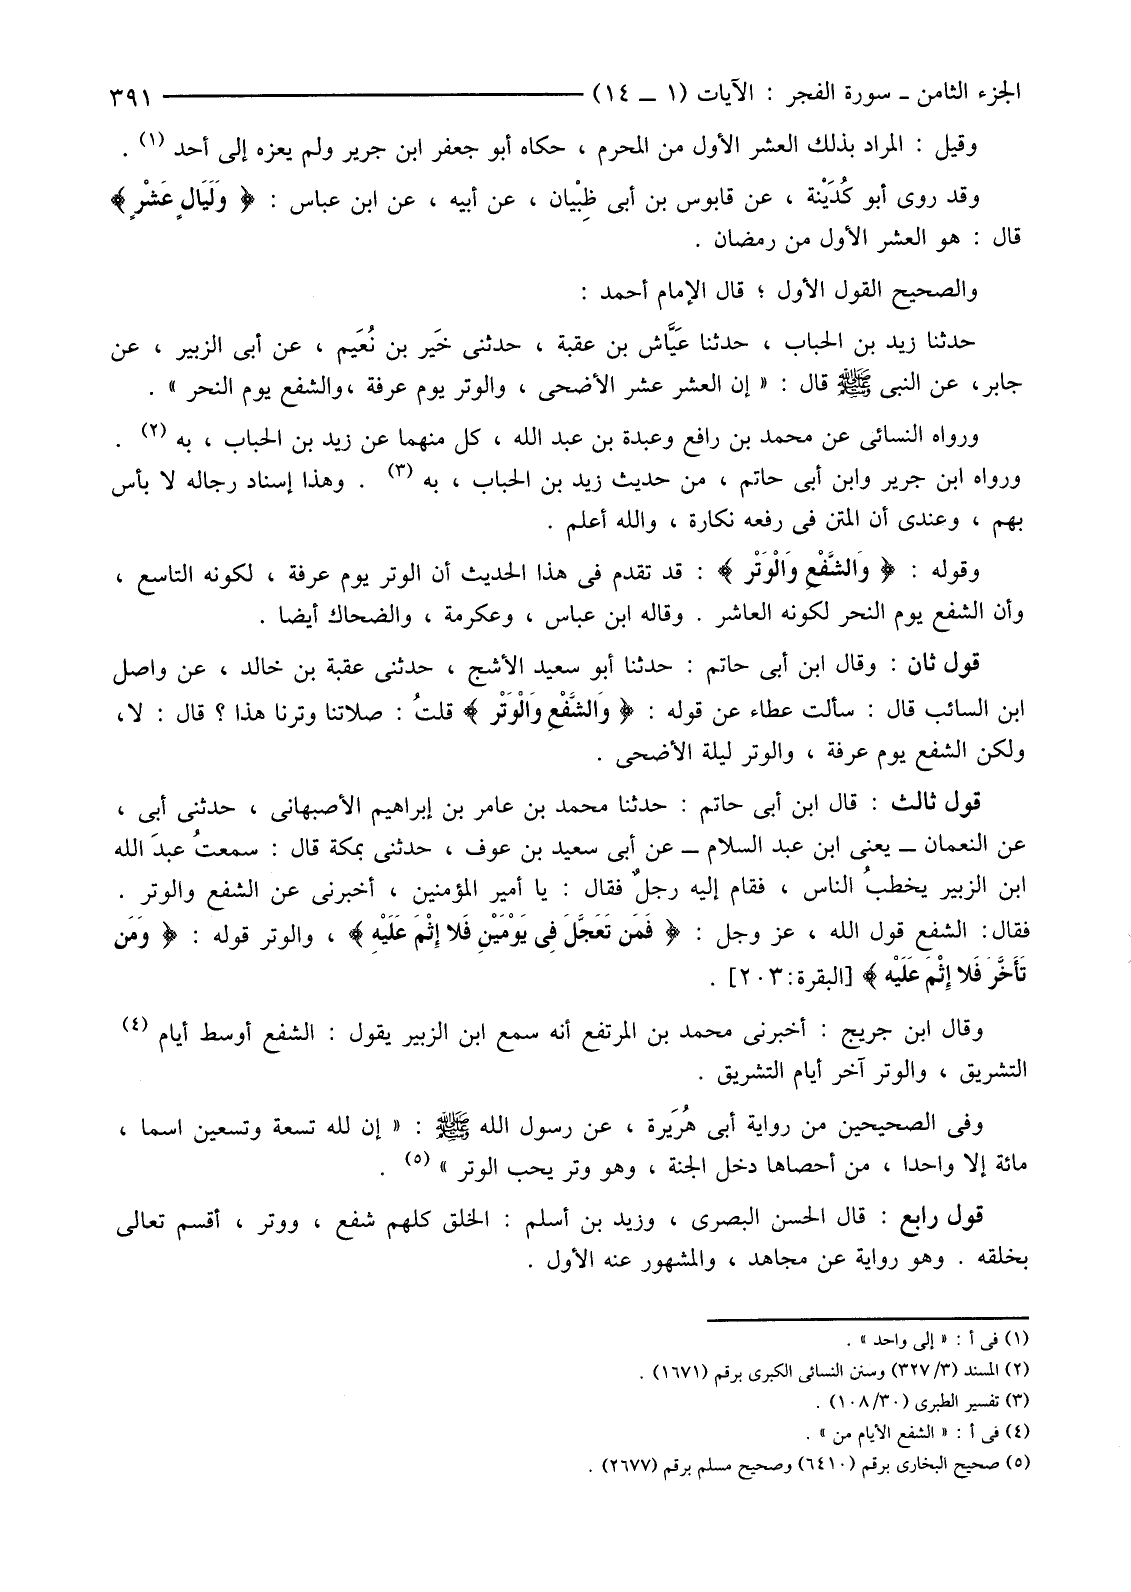 الجزء الثامن ـ سورة الفجر : الآيات (١ ـ ١٤) ٣٩١
وقيل : المراد بذلك العشر الأول من المحرم ، حكاه أبو جعفر ابن جرير ولم يعزه إلى أحد (١) .
وقد روى أبو كُدَيْنة ، عن قابوس بن أبى ظِبْيان ، عن أبيه ، عن ابن عباس : ﴿ وَلَيَالٍ عَشْرٍ ﴾
قال : هو العشر الأول من رمضان .
والصحيح القول الأول ؛ قال الإمام أحمد :
حدثنا زيد بن الحباب ، حدثنا عَيَّاش بن عقبة ، حدثنى خَير بن نُعَيم ، عن أبى الزبير ، عن
جابر، عن النبى ﷺ قال : « إن العشر عشر الأضحى ، والوتر يوم عرفة ،والشفع يوم النحر » .
ورواه النسائى عن محمد بن رافع وعبدة بن عبد الله ، كل منهما عن زيد بن الحباب ، به (٢) .
ورواه ابن جرير وابن أبى حاتم ، من حديث زيد بن الحباب ، به (٣) . وهذا إسناد رجاله لا بأس
بهم ، وعندى أن المتن فى رفعه نكارة ، والله أعلم .
وقوله : ﴿ وَالشَّفْعِ وَالْوَتْرِ ﴾ : قد تقدم فى هذا الحديث أن الوتر يوم عرفة ، لكونه التاسع ،
وأن الشفع يوم النحر لكونه العاشر . وقاله ابن عباس ، وعكرمة ، والضحاك أيضا .
قول ثان : وقال ابن أبى حاتم : حدثنا أبو سعيد الأشج ، حدثنى عقبة بن خالد ، عن واصل
ابن السائب قال : سألت عطاء عن قوله : ﴿ وَالشَّفْعِ وَالْوَتْرِ ﴾ قلتُ : صلاتنا وترنا هذا ؟ قال : لا،
ولكن الشفع يوم عرفة ، والوتر ليلة الأضحى .
قول ثالث : قال ابن أبى حاتم : حدثنا محمد بن عامر بن إبراهيم الأصبهانى ، حدثنى أبى ،
عن النعمان ـ يعنى ابن عبد السلام ـ عن أبى سعيد بن عوف ، حدثنى بمكة قال : سمعتُ عبدَ الله
ابن الزبير يخطبُ الناس ، فقام إليه رجلٌ فقال : يا أمير المؤمنين ، أخبرنى عن الشفع والوتر .
فقال: الشفع قول الله ، عز وجل : ﴿ فَمَن تَعَجَّلَ فِى يَوْمَيْنِ فَلا إِثْمَ عَلَيْهِ ﴾ ، والوتر قوله : ﴿ وَمَن
تَأَخَّرَ فَلا إِثْمَ عَلَيْه ﴾ [البقرة:٢٠٣] .
وقال ابن جريج : أخبرنى محمد بن المرتفع أنه سمع ابن الزبير يقول : الشفع أوسط أيام (٤)
التشريق ، والوتر آخر أيام التشريق .
وفى الصحيحين من رواية أبى هُرَيرة ، عن رسول الله ﷺ : « إن لله تسعة وتسعين اسما ،
مائة إلا واحدا ، من أحصاها دخل الجنة ، وهو وتر يحب الوتر » (٥) .
قول رابع : قال الحسن البصرى ، وزيد بن أسلم : الخلق كلهم شفع ، ووتر ، أقسم تعالى
بخلقه . وهو رواية عن مجاهد ، والمشهور عنه الأول .
(١) فى أ : « إلى واحد » .
(٢) المسند (٣/ ٣٢٧) وسنن النسائى الكبرى برقم (١٦٧١) .
(٣) تفسير الطبرى (٣٠/ ١٠٨) .
(٤) فى أ : « الشفع الأيام من » .
(٥) صحيح البخارى برقم (٦٤١٠) وصحيح مسلم برقم (٢٦٧٧) .